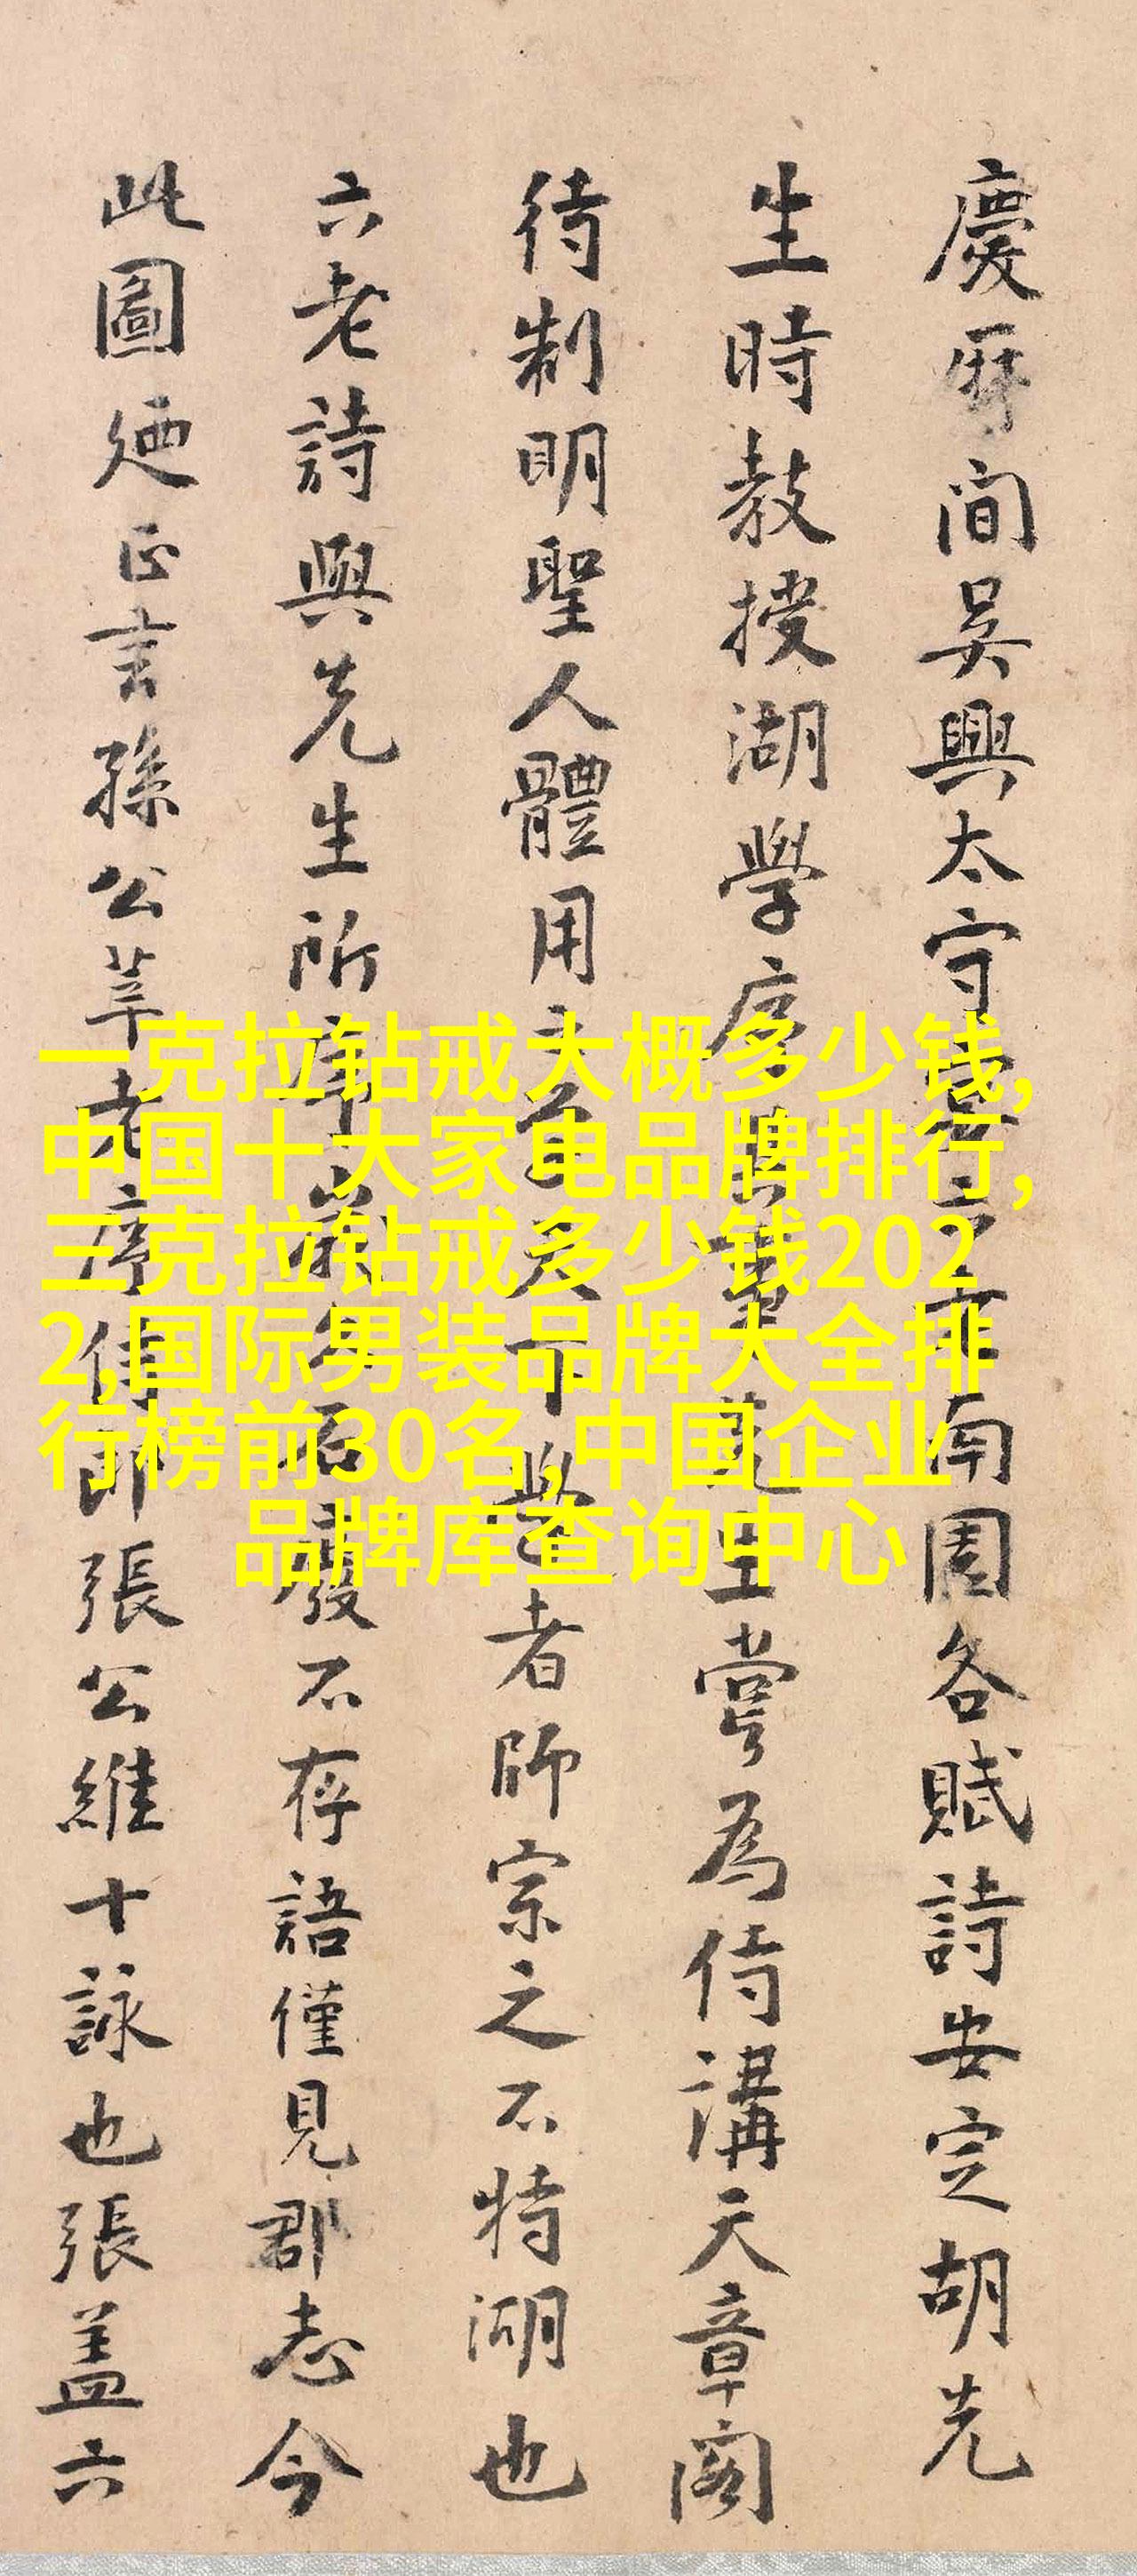 慶厤間吳興太守宴六老南園各賦詩安定胡先
生時教授湖學序其事先生嘗為侍講天章閣
待制明聖人體用之天下學者師宗之不特湖也
六老詩與先生所序歲久石廢不存語僅見郡志今
此圖廼正言孫公莘老序侍郎張公維十詠也張蓋六
一克拉钻戒大概多少钱,
中国十大家电品牌排行,
三克拉钻戒多少钱202
2,国际男装品牌大全排
行榜前30名,中国企业
品牌库查询中心